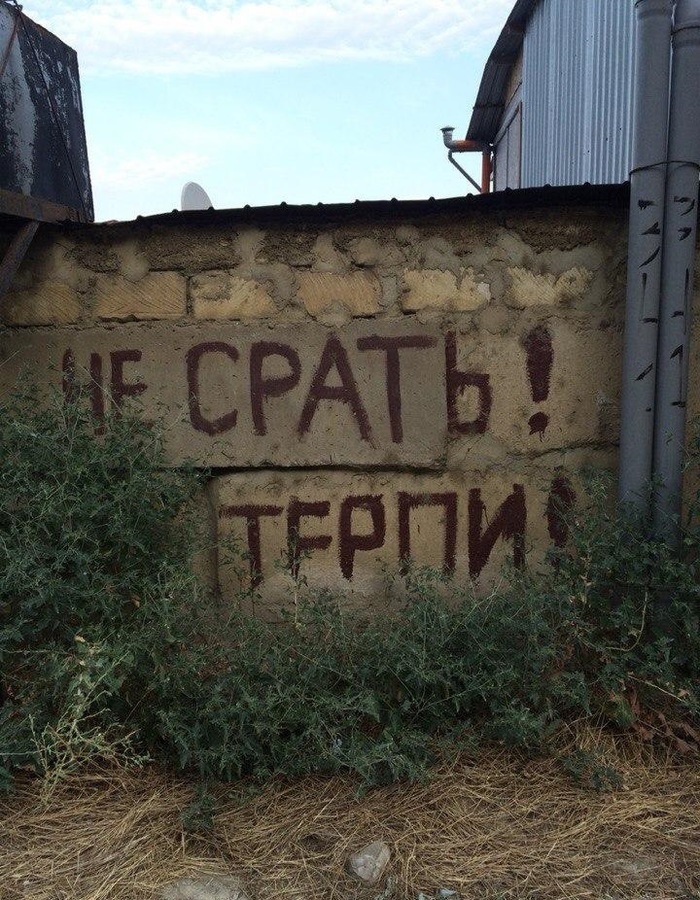 НЕ СРАТЬ!
ТЕРПИ!